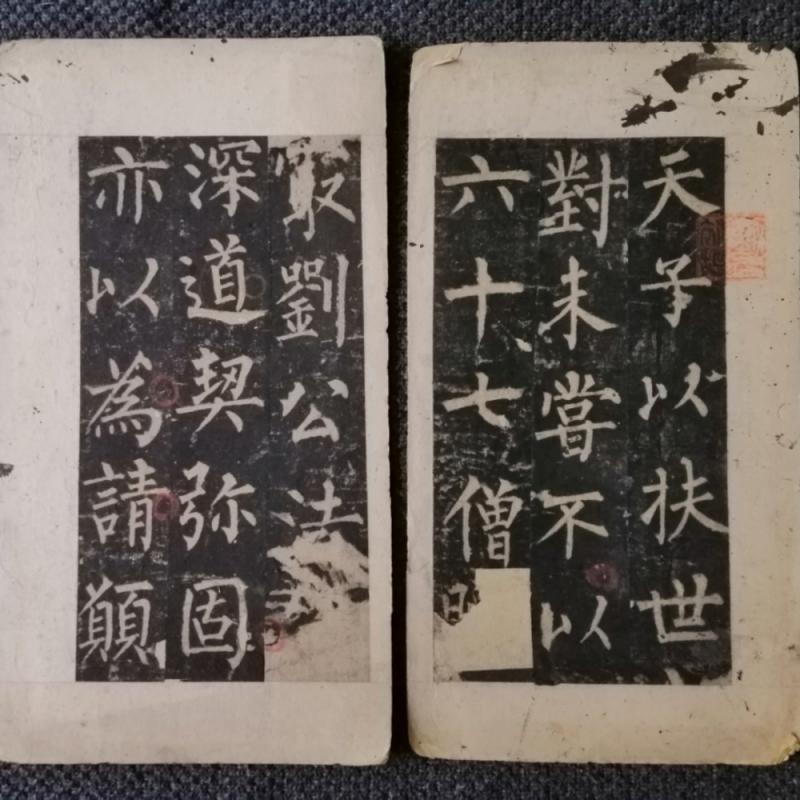 天子以扶世
對未嘗不以
六十七僧
㝡劉公法
深道契弥固
亦以為請願